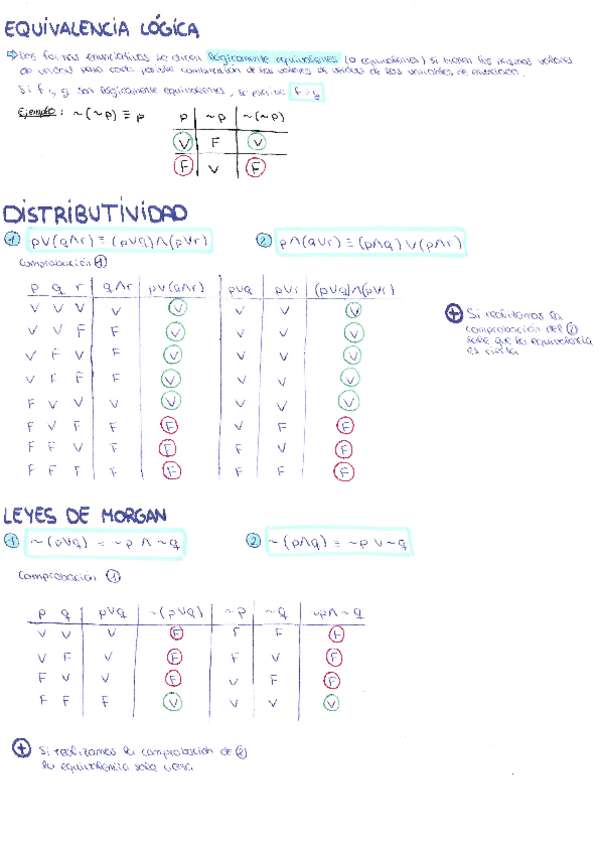 EQUIVALENCIA LÓGICA
⇨ Dos formas enunciativas se dicen lógicamente equivalentes (o equivalentes) si tienen los mismos valores
de verdad para cada posible combinación de los valores de verdad de las variables de enunciado.
Si f y g son lógicamente equivalentes, se escribe f ≡ g
Ejemplo: ~(~p) ≡ p
p ~p ~(~p)
V F V
F V F
DISTRIBUTIVIDAD
1 p∨(q∧r) ≡ (p∨q)∧(p∨r) 2 p∧(q∨r) ≡ (p∧q)∨(p∧r)
Comprobación 1
p q r q∧r p∨(q∧r) p∨q p∨r (p∨q)∧(p∨r)
V V V V V V V V
V V F F V V V V
V F V F V V V V
V F F F V V V V
F V V V V V V V
F V F F F V F F
F F V F F F V F
F F F F F F F F
+ Si realizamos la
comprobación del 2
sale que la equivalencia
es cierta
LEYES DE MORGAN
1 ~(p∨q) ≡ ~p ∧ ~q 2 ~(p∧q) ≡ ~p ∨ ~q
Comprobación 1
p q p∨q ~(p∨q) ~p ~q ~p∧~q
V V V F F F F
V F V F F V F
F V V F V F F
F F F V V V V
+ Si realizamos la comprobación de 2
la equivalencia sale cierta